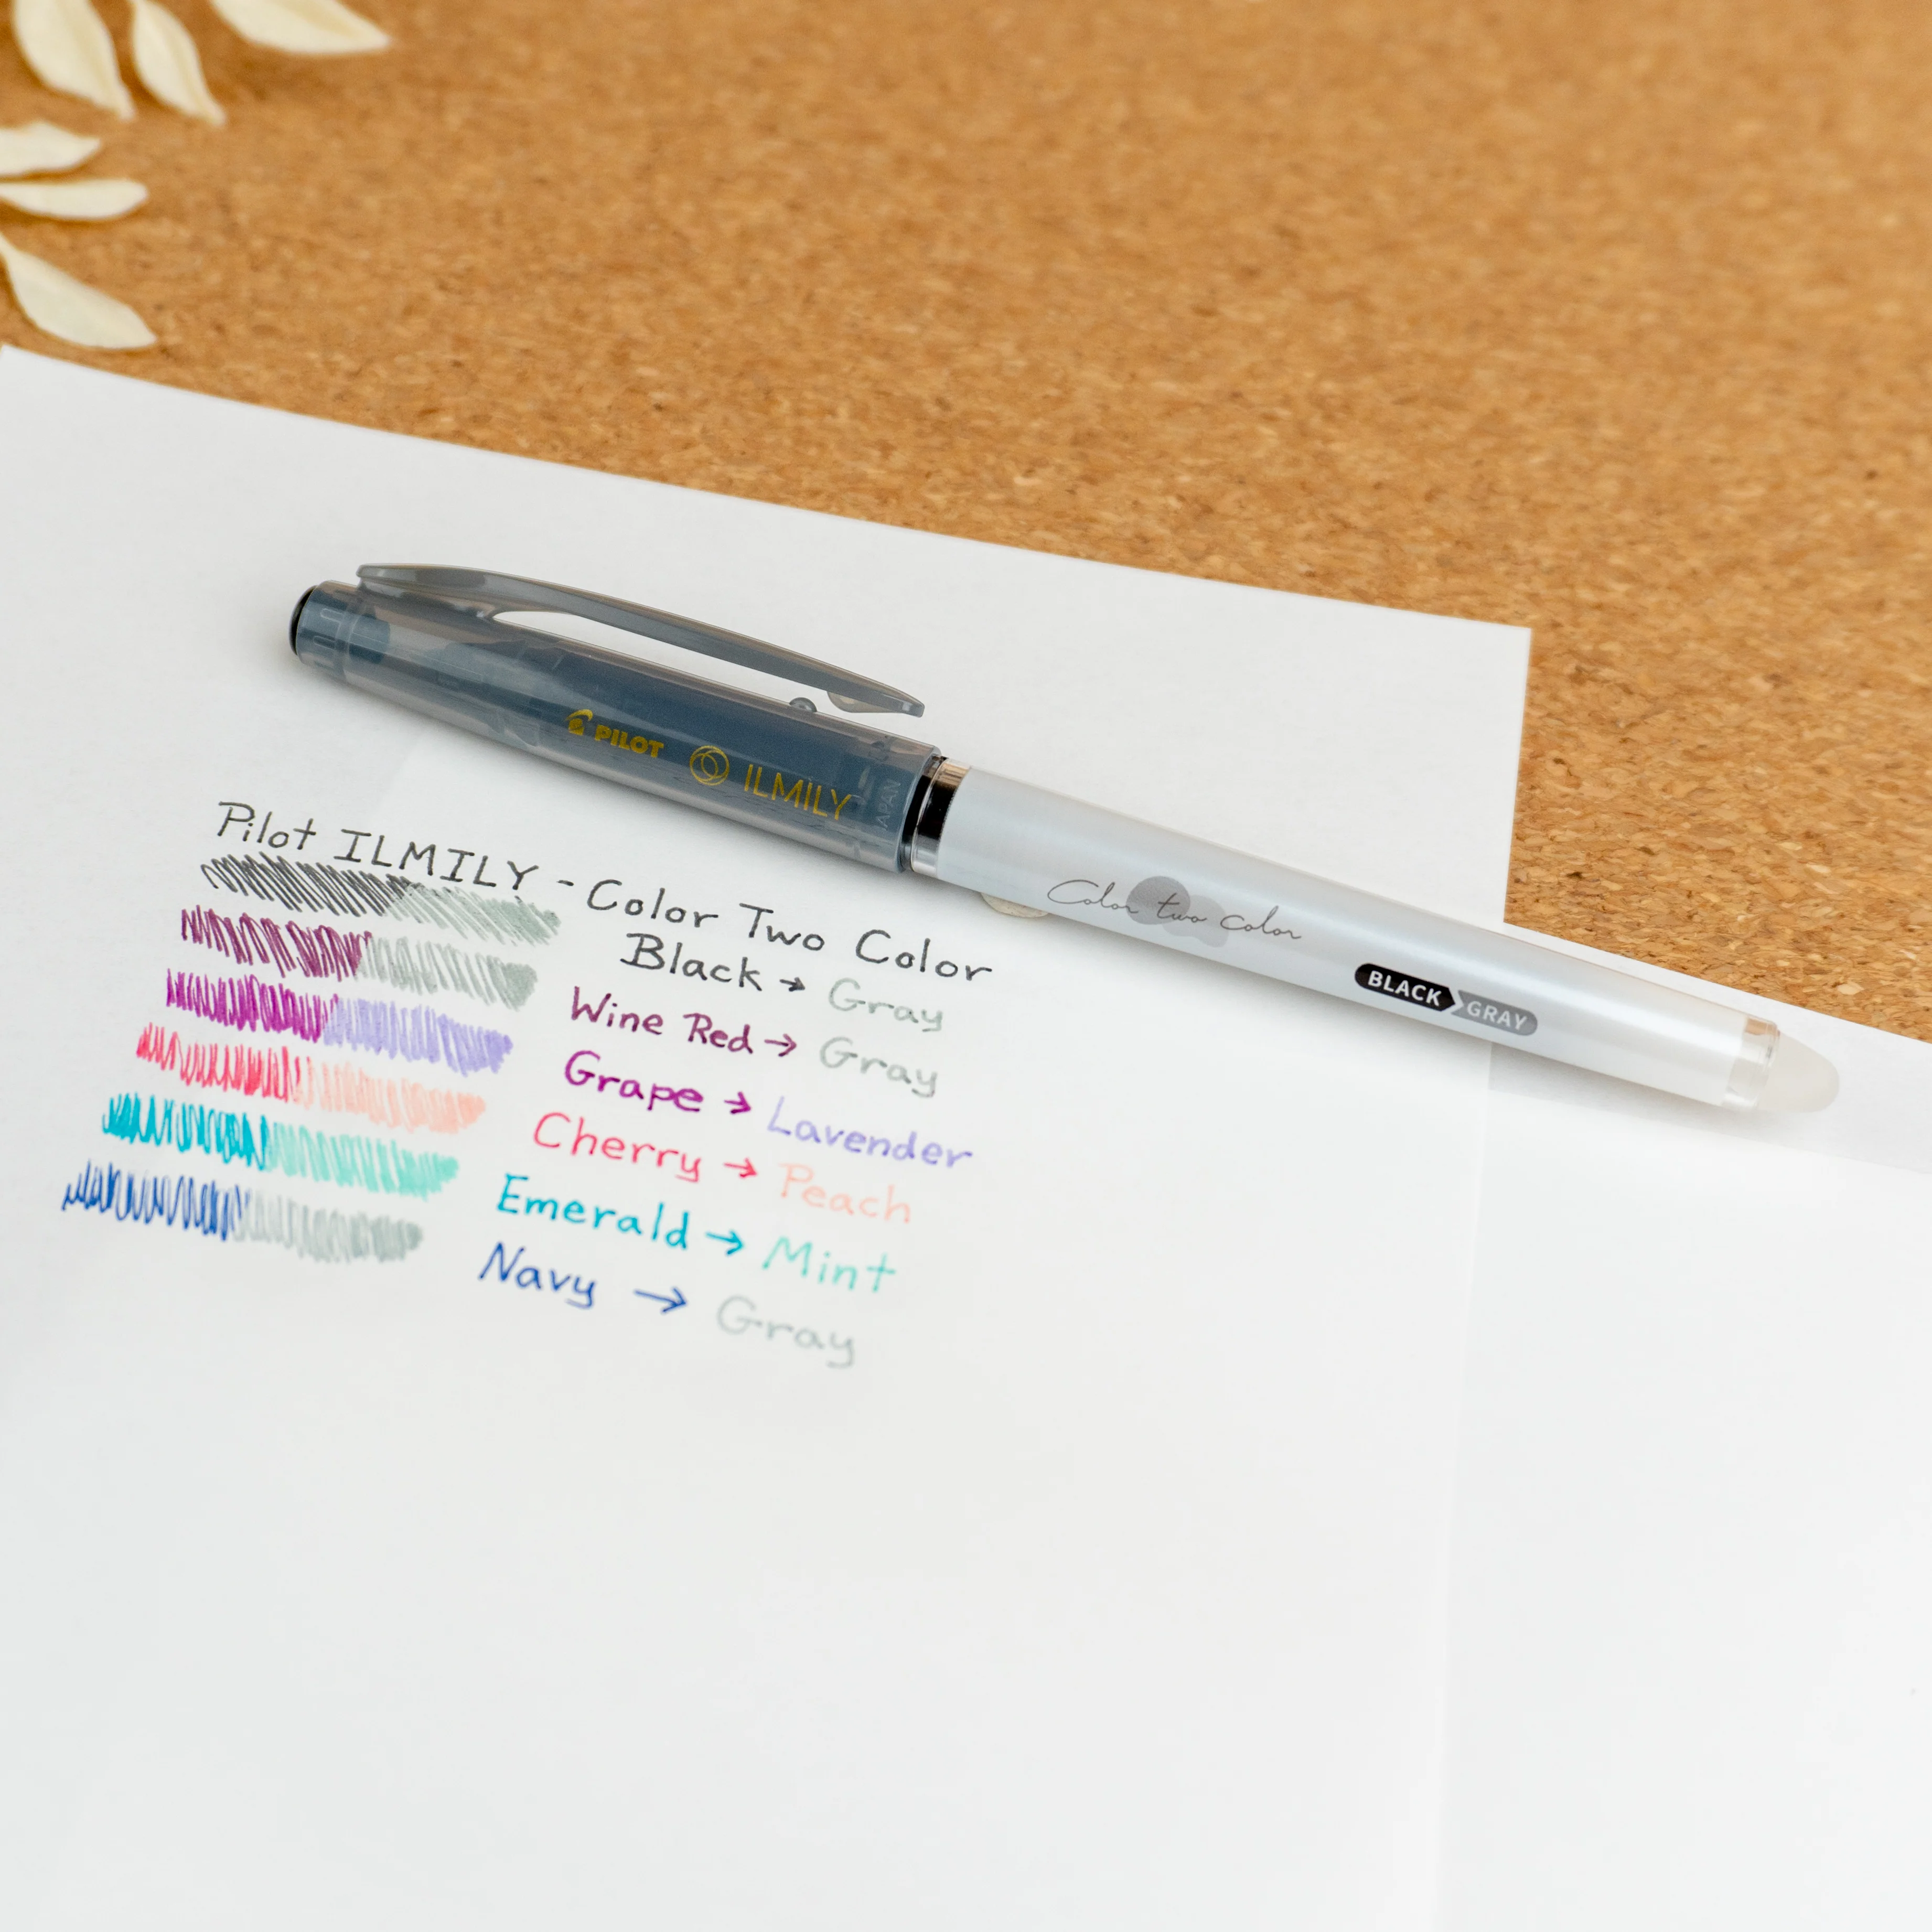 PILOT ILMILY JAPAN
Color two color
BLACK GRAY
Pilot ILMILY - Color Two Color
Black → Gray
Wine Red → Gray
Grape → Lavender
Cherry → Peach
Emerald → Mint
Navy → Gray